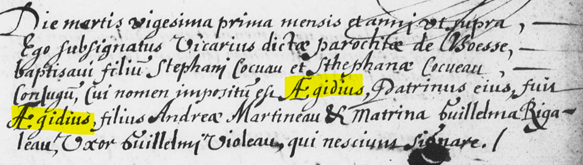 Die martis vigesima prima mensis et anni vt supra,
Ego subsignatus Vicarius dictæ parochiæ de Boesse,
baptisaui filiū Stephani Cocuau et Sthephanæ Cocueau
Coniugū, Cui nomen impositū est Ægidius, Patrinus eius, fuit
Ægidius, filius Andreæ Martineau & Matrina Guillelma Riga-
leau, Vxor Guillelmi Violeau, qui nesciunt signare. /